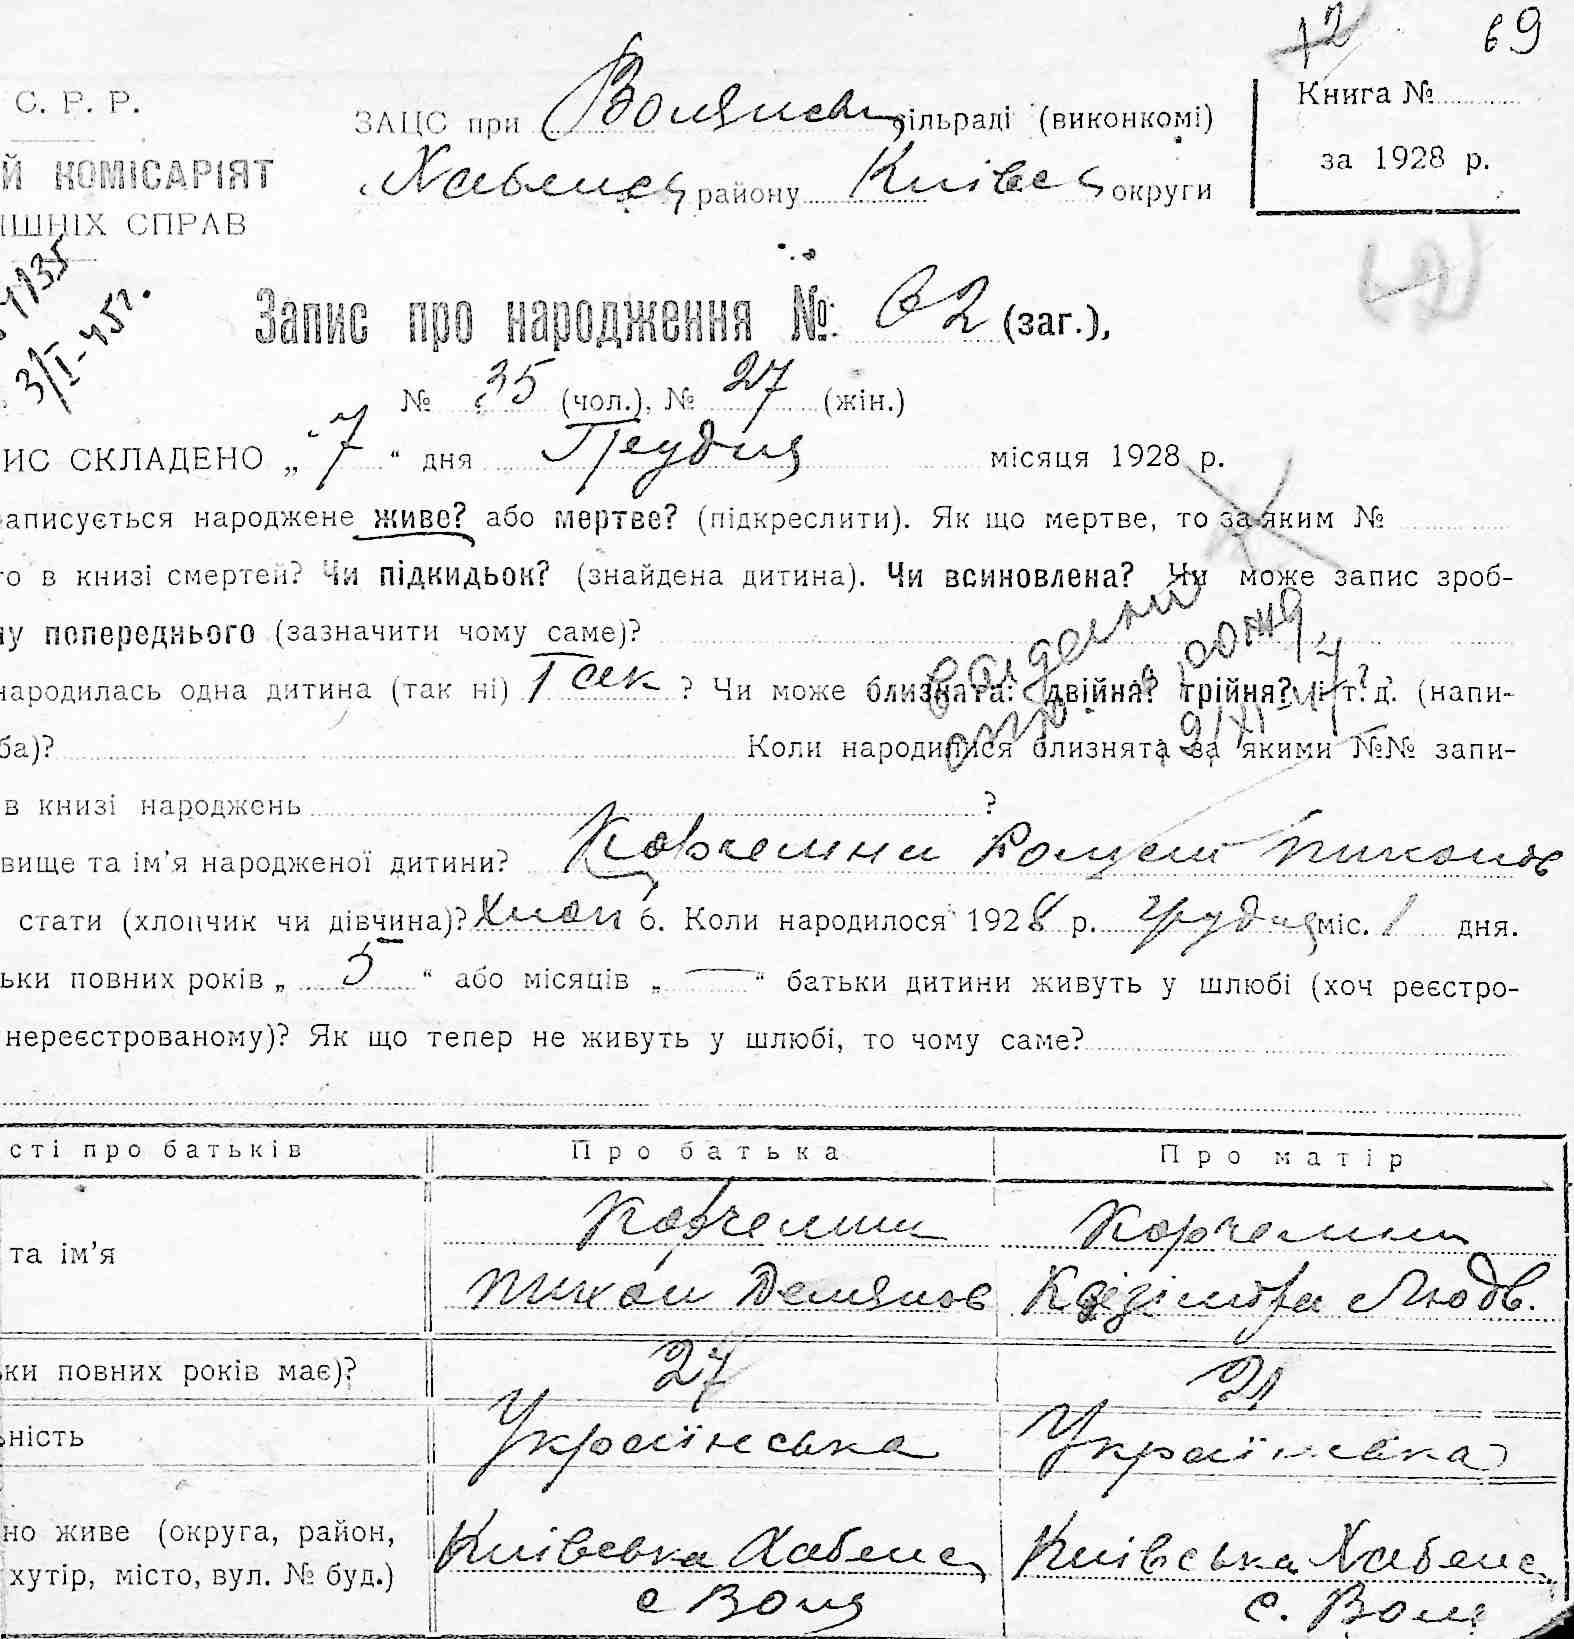 12 69
С. Р. Р.
ЗАЦС при Волянськ сільраді (виконкомі)
Книга №
Й КОМІСАРІЯТ
Хабенськ району Київськ округи
за 1928 р.
ІШНІХ СПРАВ
1135
3/I-45г.
Запис про народження № 62 (заг.),
№ 35 (чол.), № 27 (жін.)
ИС СКЛАДЕНО „ 7 “ дня Грудня місяця 1928 р.
аписується народжене живе? або мертве? (підкреслити). Як що мертве, то за яким №
го в книзі смертей? Чи підкидьок? (знайдена дитина). Чи всиновлена? Чи може запис зроб-
му попереднього (зазначити чому саме)?
народилась одна дитина (так ні) 1 так ? Чи може близнята: двійня? трійня? і т. д. (напи-
ба)? Коли народилися близнята за якими №№ запи-
в книзі народжень ?
вище та ім’я народженої дитини? Корчемни Роман Тихонов
стати (хлопчик чи дівчина)? Хлоп б. Коли народилося 1928 р. грудня міс. 1 дня.
ьки повних років „ 5 “ або місяців „ — “ батьки дитини живуть у шлюбі (хоч реєстро-
нереєстрованому)? Як що тепер не живуть у шлюбі, то чому саме?
сті про батьків Про батька Про матір
Корчемни Корчемни
та ім’я
Тихон Демянов Казімїра Людв.
ки повних років має)? 27 21
ьність Українська Українська
но живе (округа, район, Київська Хабенс Київська Хабенс
хутір, місто, вул. № буд.) с Воля с. Воля